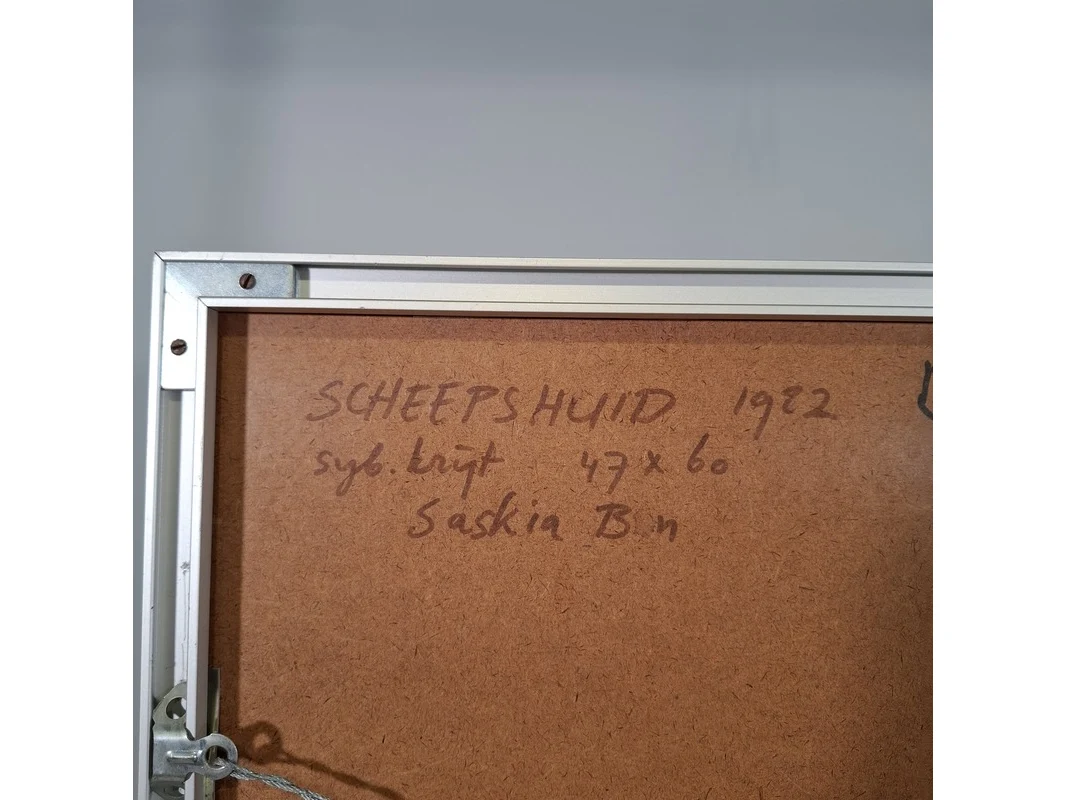 SCHEEPSHUID 1982
syb. krijt 47 x 60
Saskia